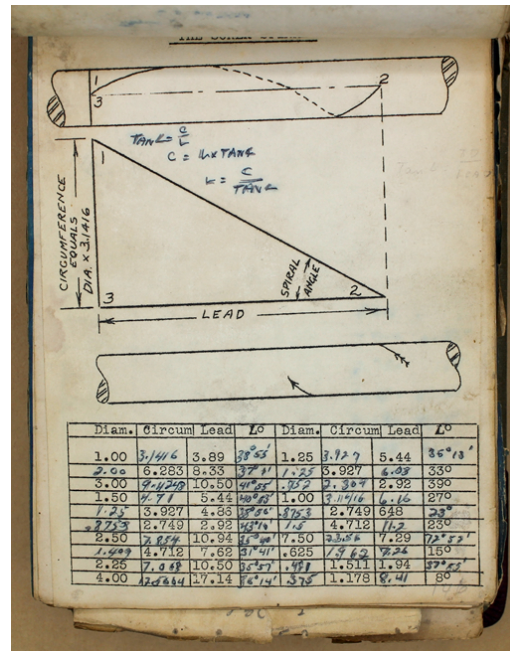 1
3
2
TAN∠ = C/L
C = L x TAN∠
L = C/TAN∠
1
CIRCUMFERENCE
EQUALS
DIA. x 3.1416
SPIRAL
ANGLE
3
2
LEAD
Diam. Circum Lead L° Diam. Circum Lead L°
1.00 3.1416 3.89 38°55' 1.25 3.927 5.44
2.00 6.283 8.33 37° 1.25 3.927 6.03 33°
3.00 9.4248 10.50 41°55' .752 2.92 39°
1.50 4.71 5.44 40°53' 1.00 3.1416 6.16 27°
1.25 3.927 4.86 .8753 2.749 648 23°
.8753 2.749 2.92 43°14' 1.5 4.712 11.2 23°
2.50 7.854 10.94 7.50 7.29 72°
4.712 7.62 31°41' .625 1.962 7.26 15°
2.25 7.068 10.50 1.511 1.94
4.00 17.14 36°14' .375 1.178 8.41 8°